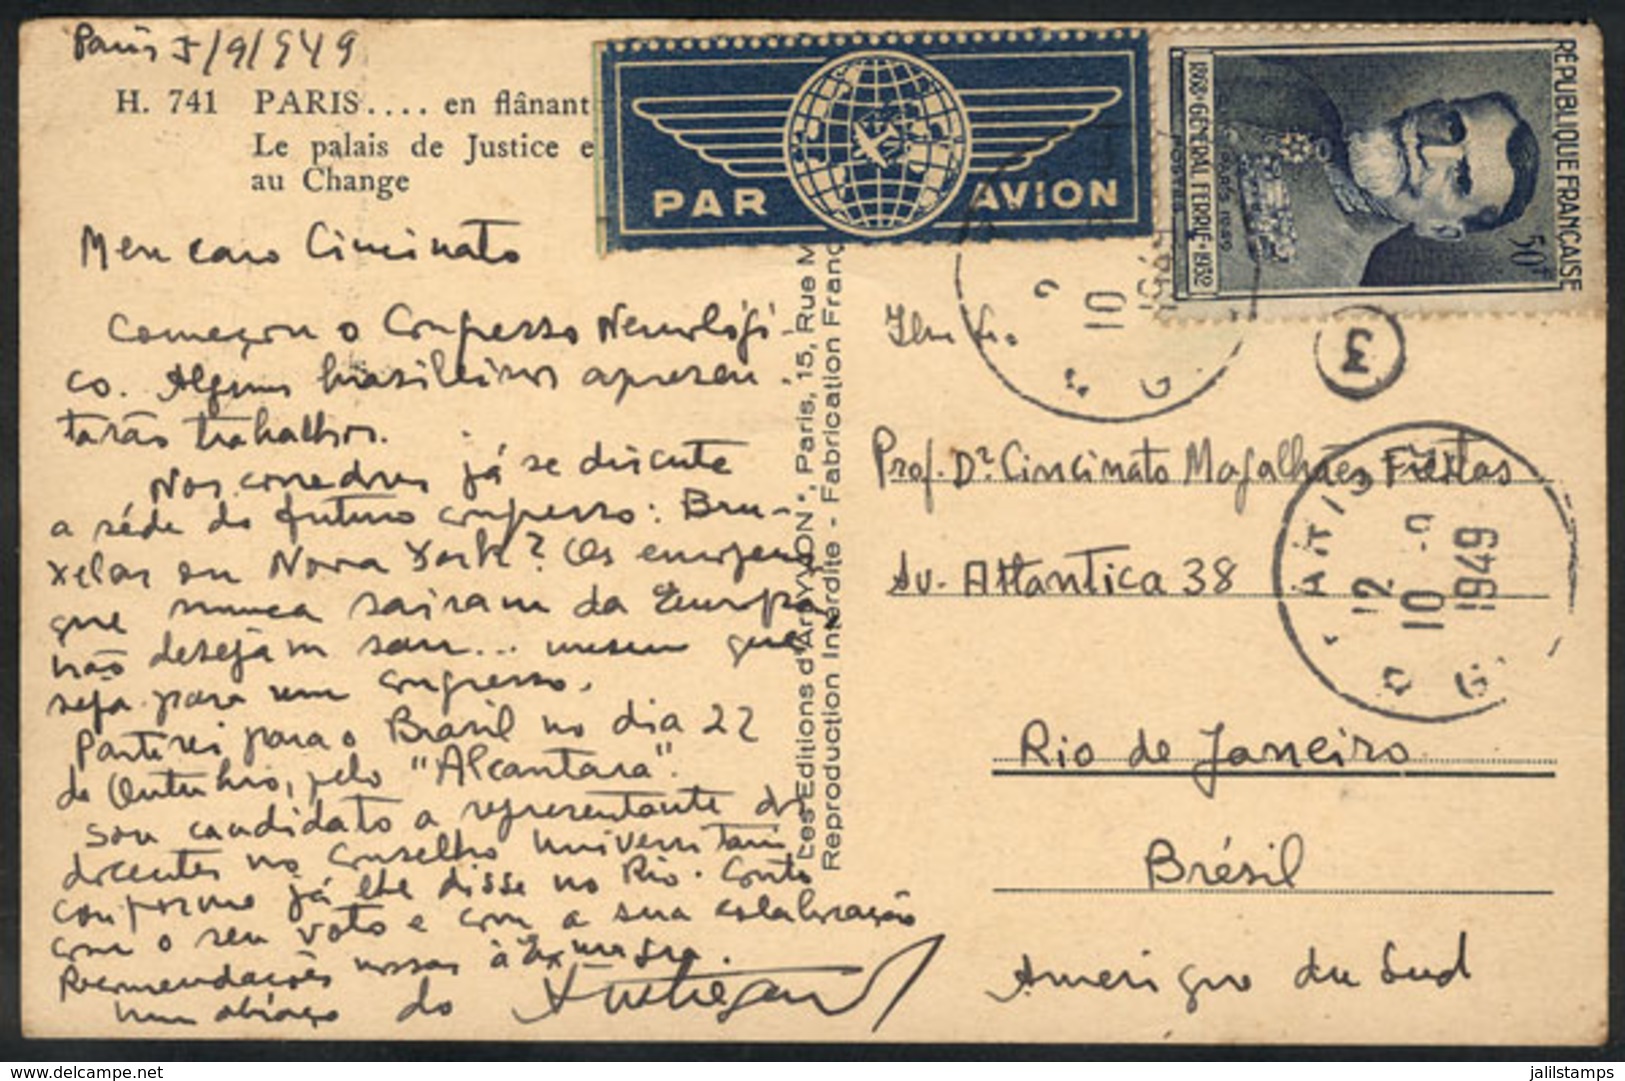 Paris 5/9/949
H. 741 PARIS.... en flânant
Le palais de Justice e
au Change
Meu caro Cincinato
Começou o Congresso Neurológi-
co. Alguns brasileiros apresen-
tarão trabalhos.
Nos corredores já se discute
a séde do futuro congresso: Bru-
xelas ou Nova York? Os europeus
que nunca sairam da Europa
não desejam sair... mesmo que
seja para um congresso.
Partirei para o Brasil no dia 22
de Outubro, pelo "Alcantara".
Sou candidato a representante dos
docentes no Conselho Universitario
conforme já lhe disse no Rio. Conto
com o seu voto e com a sua colaboração
Recomendações nossas à Exma Sra.
Um abraço do
Les Editions d'Art "YVON", Paris, 15, Rue M
Reproduction Interdite - Fabrication Franç
PAR AVION
RÉPUBLIQUE FRANÇAISE
1868 · GÉNÉRAL FERRIÉ · 1932
POSTES
50F
10
3
Ilm Sr.
Prof. Dr. Cincinato Magalhães Freitas
Av. Atlantica 38
12
10 - 9
1949
Rio de Janeiro
Brésil
Amerique du Sud
jalilstamps